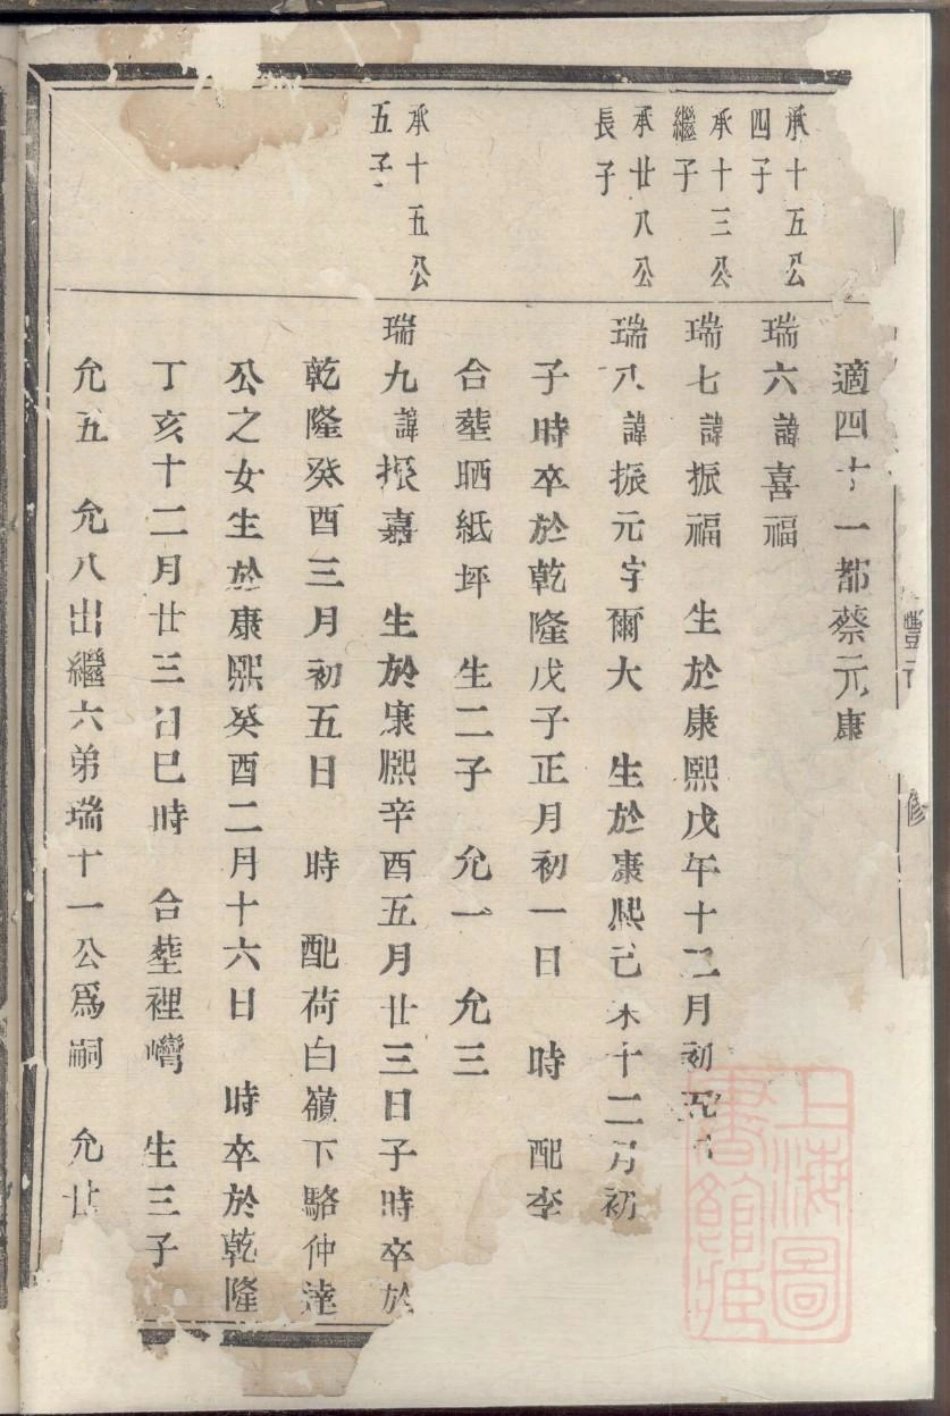 適四十一都蔡元康
承十五公
四子
瑞六諱喜福
承十三公
繼子
瑞七諱振福 生於康熙戊午十二月初五
承廿八公
長子
瑞八諱振元字爾大 生於康熙己未十二月初
子時卒於乾隆戊子正月初一日 時 配李
合塟晒紙坪 生二子 允一 允三
承十五公
五子
瑞九諱振嘉 生於康熙辛酉五月廿三日子時卒於
乾隆癸酉三月初五日 時 配荷白嶺下駱仲達
公之女生於康熙癸酉二月十六日 時卒於乾隆
丁亥十二月廿三日巳時 合塟裡灣 生三子
允五 允八出繼六弟瑞十一公爲嗣 允廿
修
上海圖
書館藏